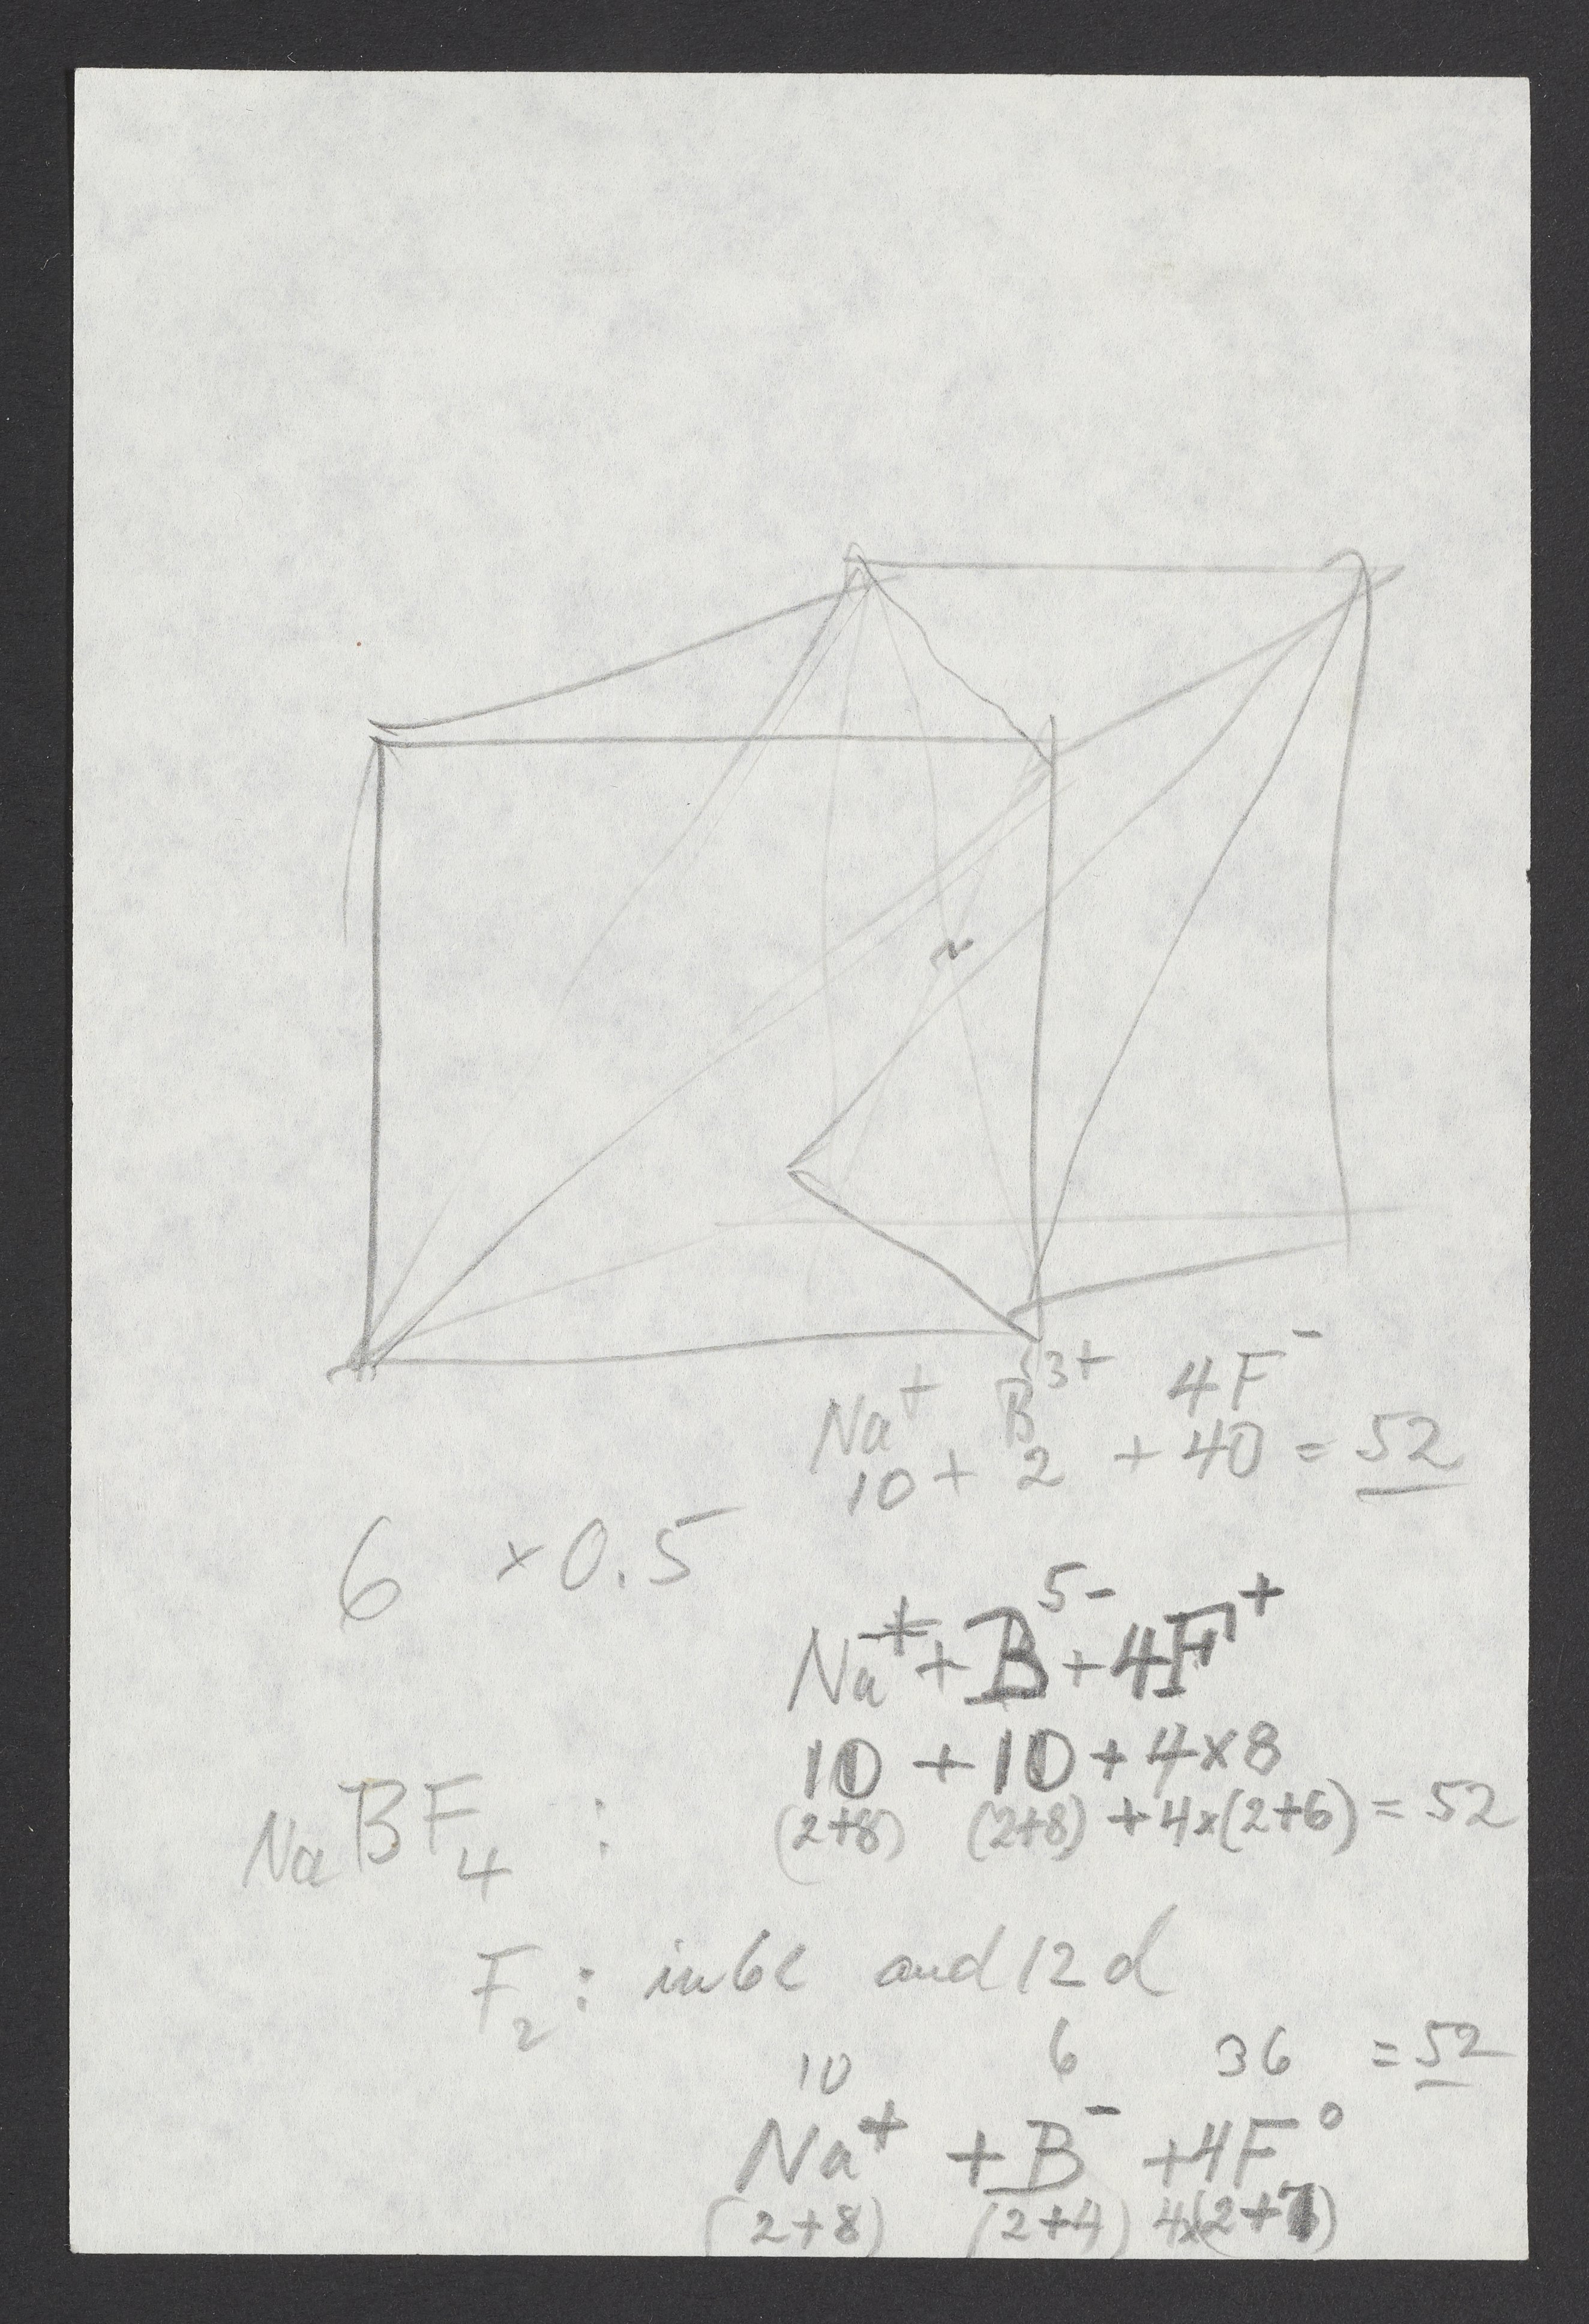 Na⁺ B³⁺ 4F⁻
10 + 2 + 40 = 52
6 × 0.5
Na⁺ + B⁵⁻ + 4F⁺
10 + 10 + 4×8
NaBF₄ : (2+8) (2+8) + 4×(2+6) = 52
F₂ : in 6c and 12d
10 6 36 = 52
Na⁺ + B⁻ + 4F⁰
(2+8) (2+4) 4×(2+7)